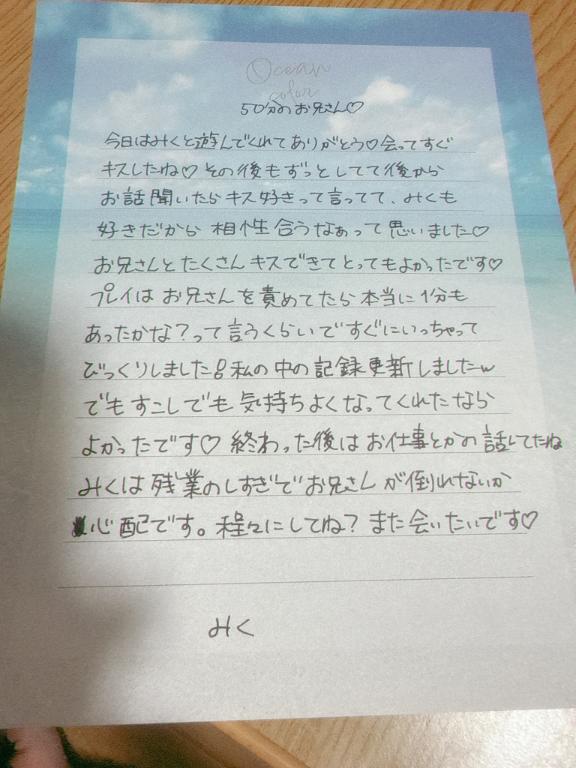 Ocean
color
50分のお兄さん♡
今日はみくと遊んでくれてありがとう♡会ってすぐ
キスしたね♡その後もずっとしてて後から
お話聞いたらキス好きって言ってて、みくも
好きだから相性合うなぁって思いました♡
お兄さんとたくさんキスできてとってもよかったです♡
プレイはお兄さんを責めてたら本当に1分も
あったかな?って言うくらいですぐにいっちゃって
びっくりしました!私の中の記録更新しましたw
でもすこしでも気持ちよくなってくれたなら
よかったです♡終わった後はお仕事とかの話してたね
みくは残業のしすぎでお兄さんが倒れないか
心配です。程々にしてね?また会いたいです♡
みく